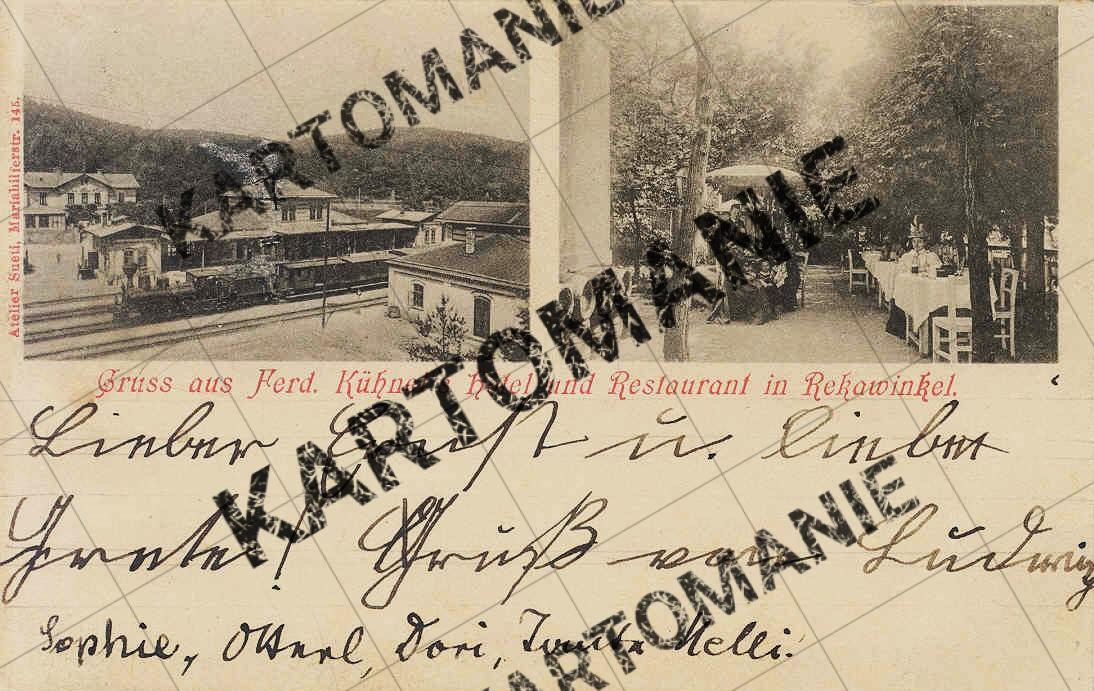 Atelier Sueti, Mariahilferstr. 145.
Gruss aus Ferd. Kühne's Hotel und Restaurant in Rekawinkel.
Lieber Ernst u. liebe
Grete! Gruß von Ludwig
Sophie, Otterl, Dori, Tante Melli.
KARTOMANIE
KARTOMANIE
KARTOMANIE
KARTOMANIE
KARTOMANIE